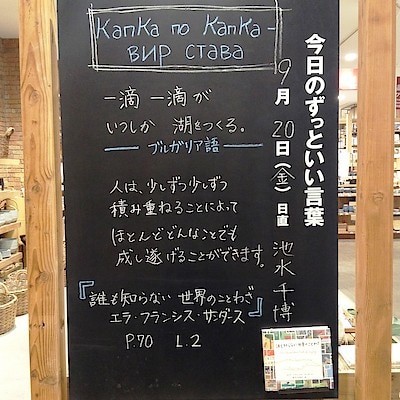 капка по капка -
вир става
一滴一滴が
いつしか 湖をつくる。
ブルガリア語
人は、少しずつ少しずつ
積み重ねることによって
ほとんどどんなことでも
成し遂げることができます。
『誰も知らない世界のことわざ』
エラ・フランシス・サンダース
P.70 L.2
今日のずっといい言葉
9月20日(金)日直 池水千博